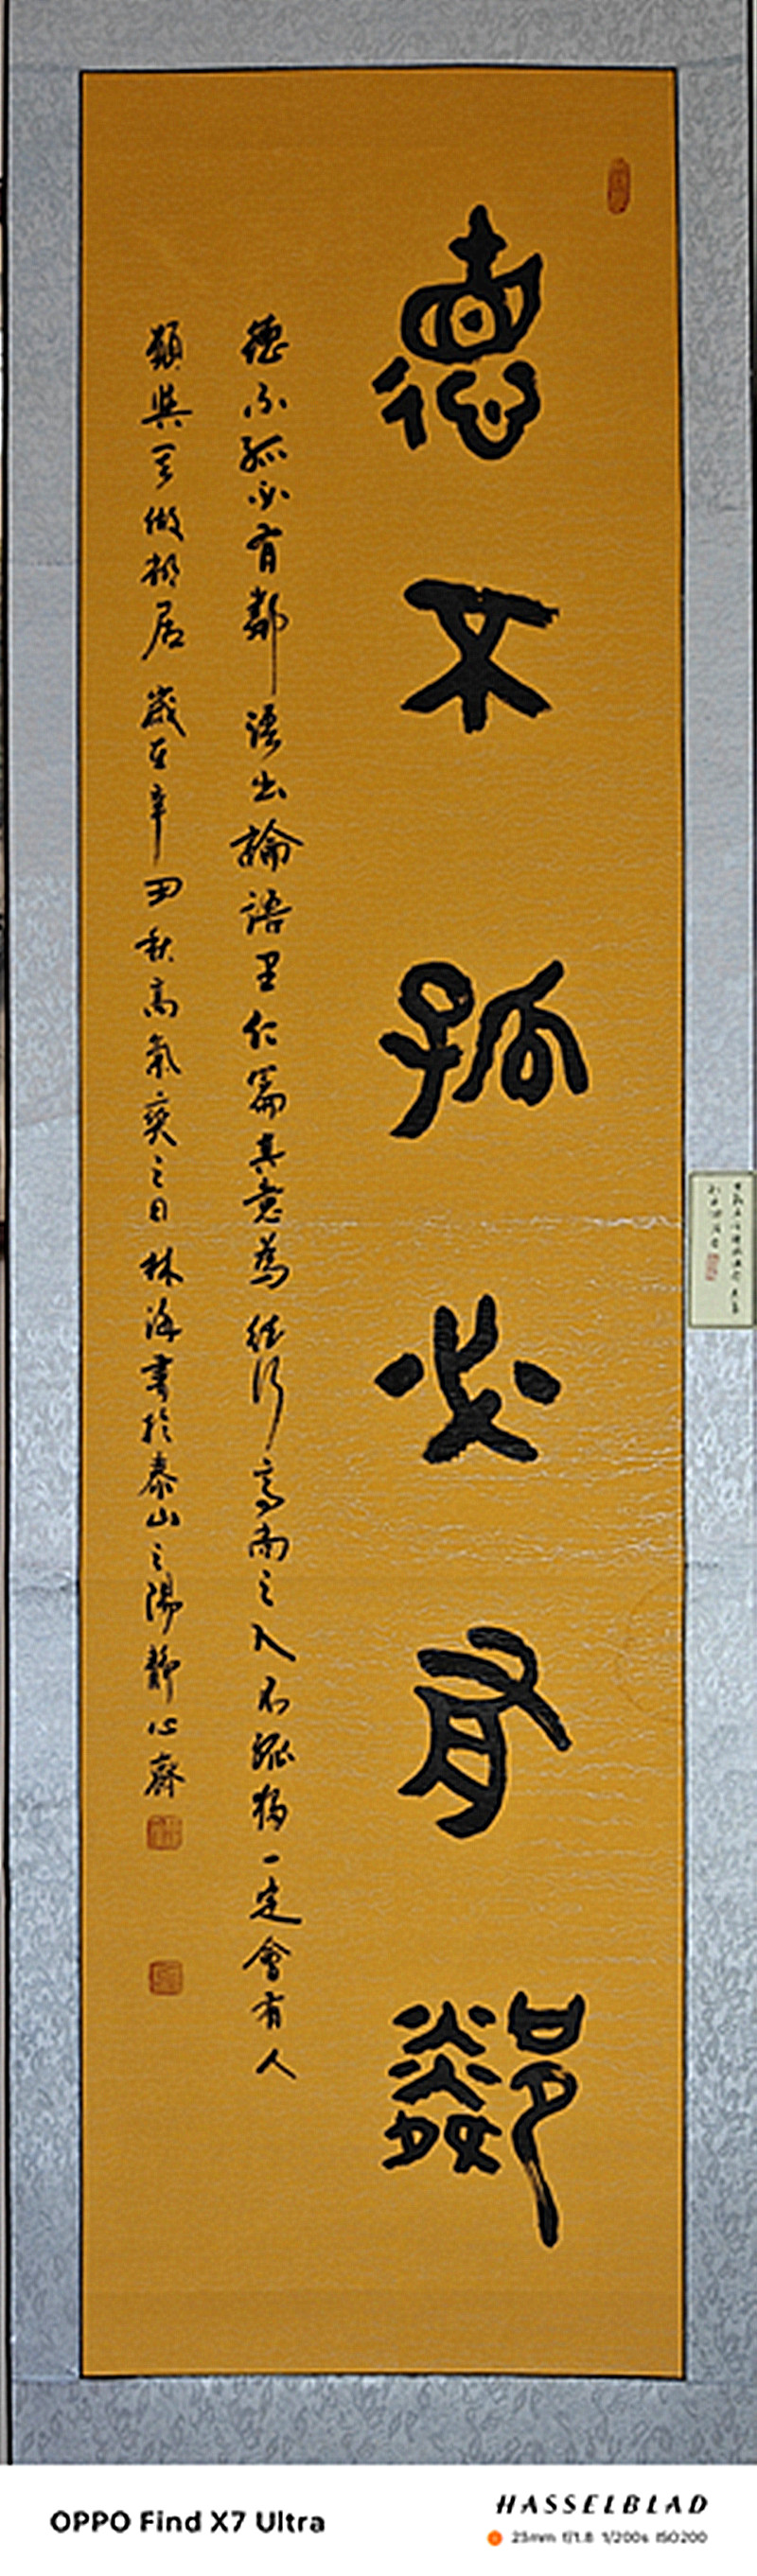 德不孤必有鄰
德不孤必有鄰語出論語里仁篇其意為德行高尚之人不孤獨一定會有人
類與之做鄰居歲在辛丑秋高氣爽之日林海書於泰山之陽靜心齋
OPPO Find X7 Ultra
HASSELBLAD
23mm f/1.8 1/200s ISO200